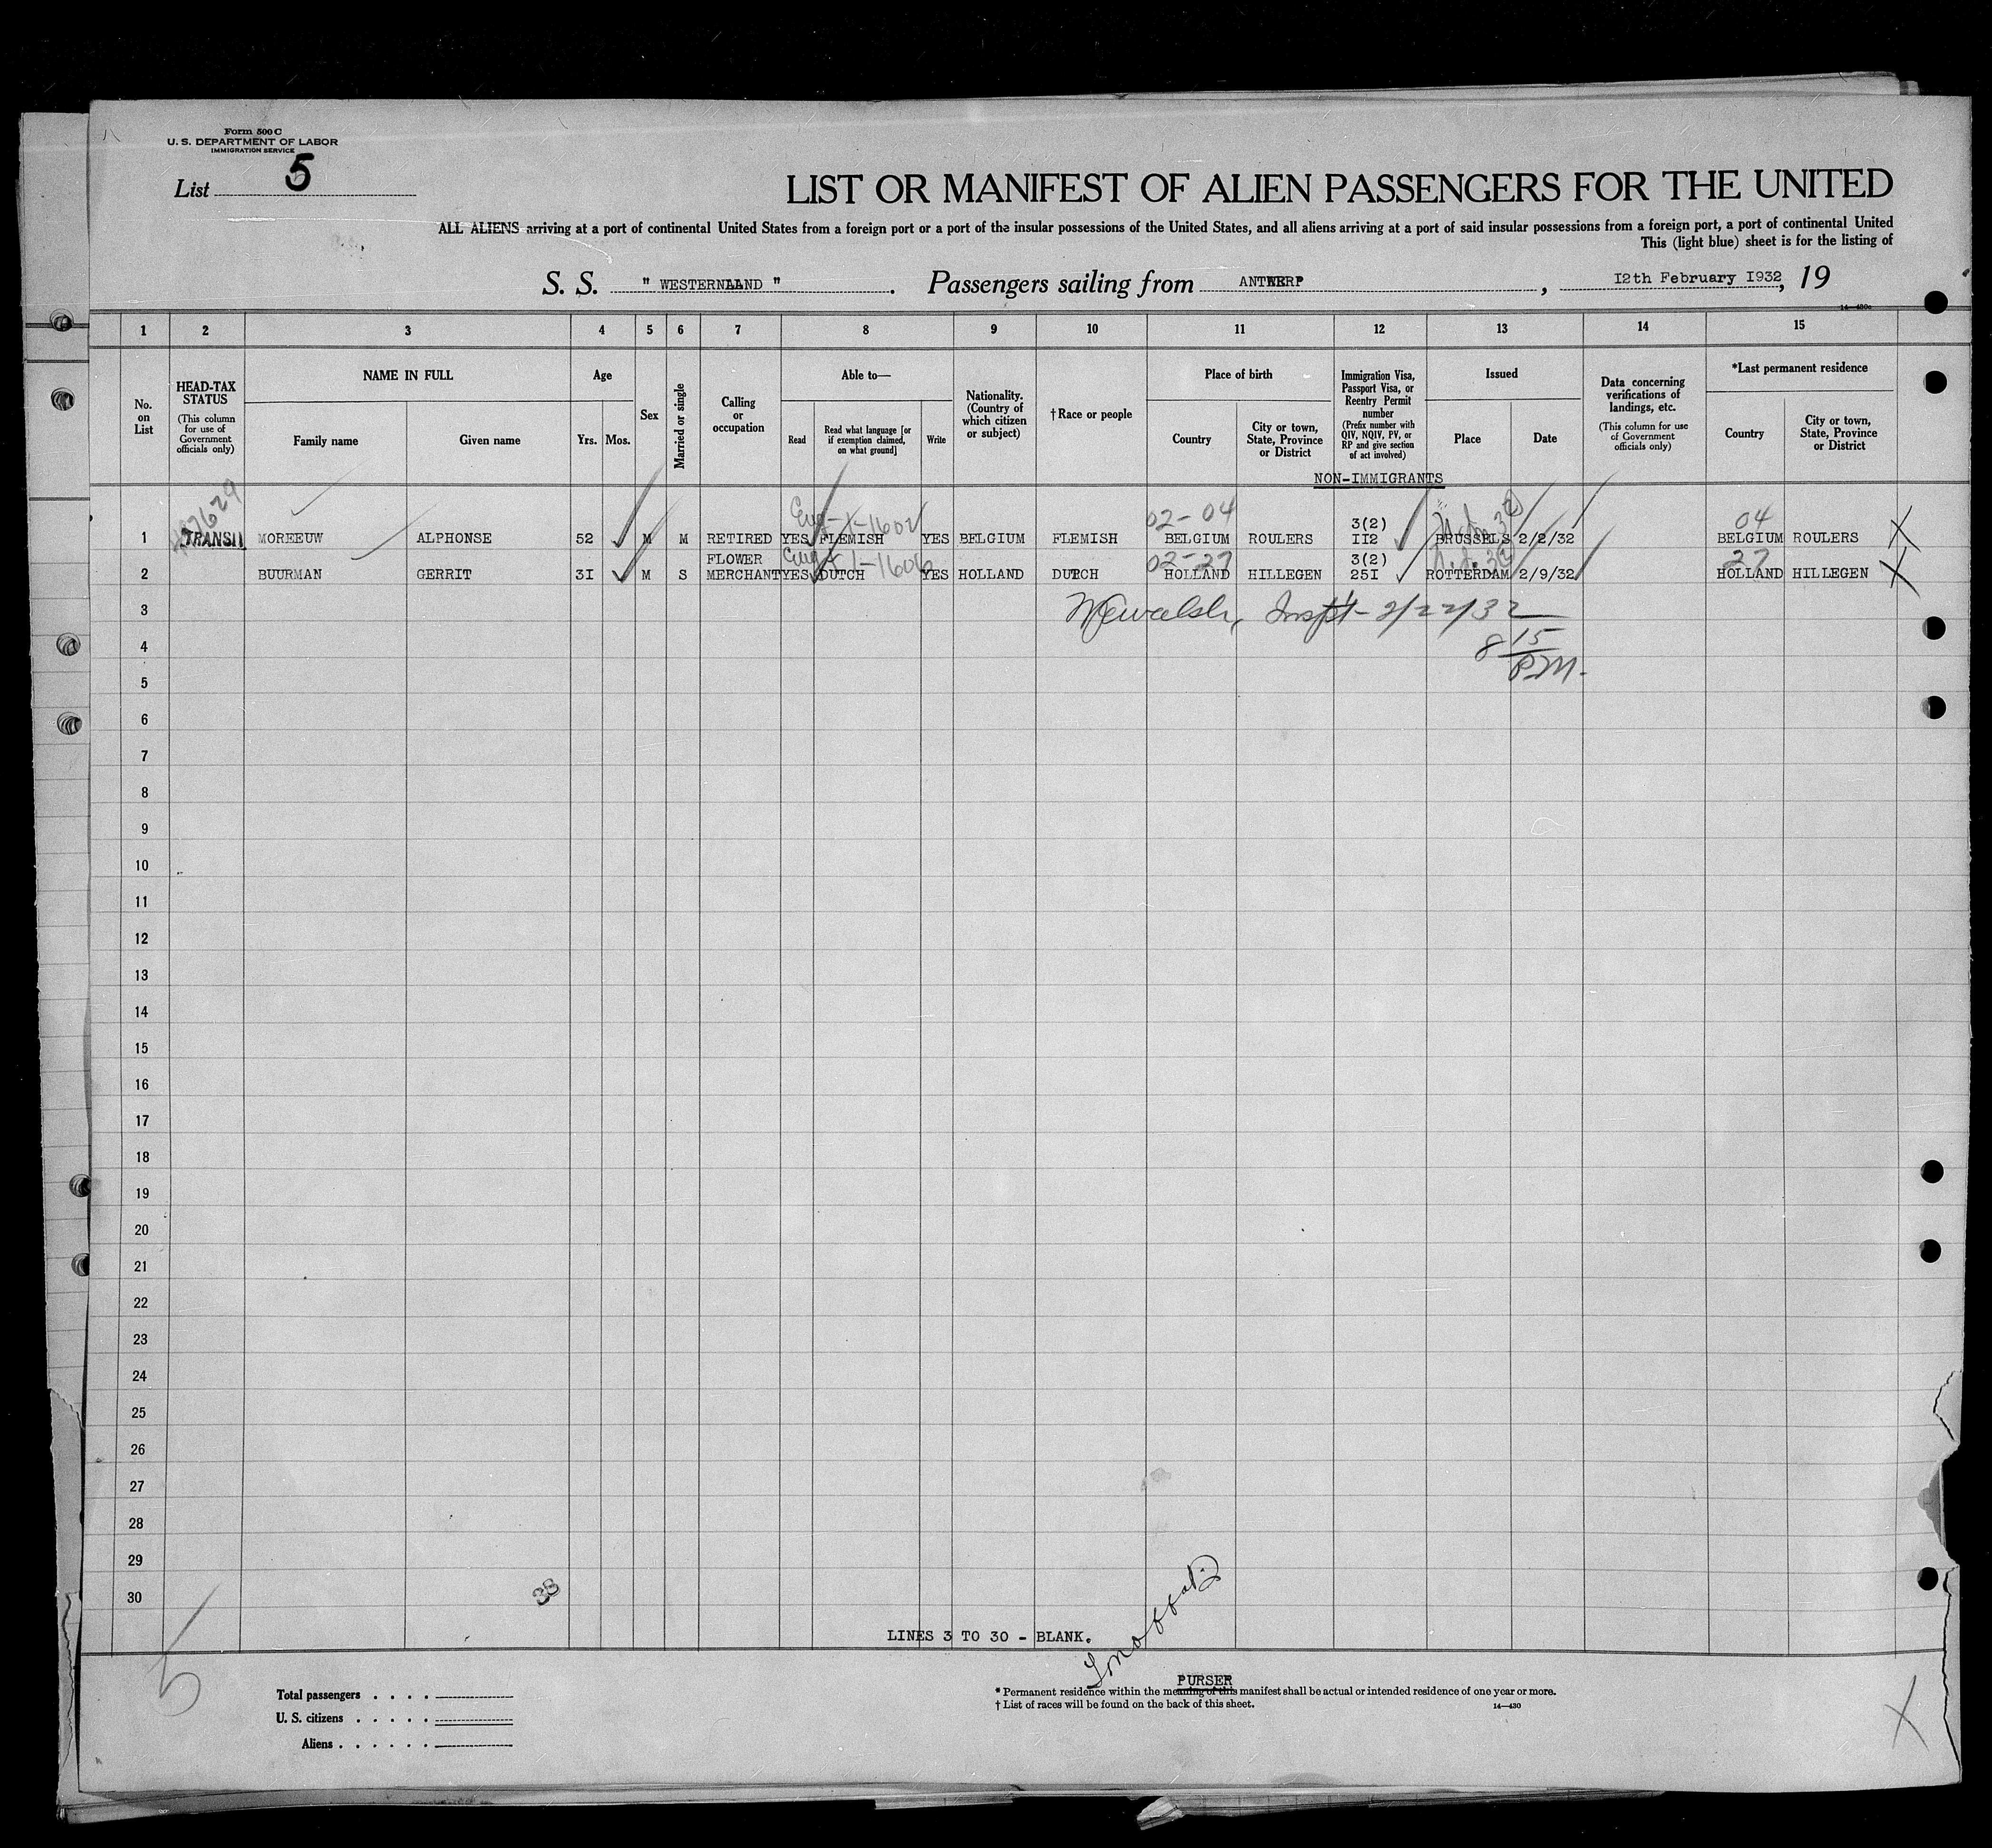 Form 500 C
U. S. DEPARTMENT OF LABOR
IMMIGRATION SERVICE
List 5
LIST OR MANIFEST OF ALIEN PASSENGERS FOR THE UNITED
ALL ALIENS arriving at a port of continental United States from a foreign port or a port of the insular possessions of the United States, and all aliens arriving at a port of said insular possessions from a foreign port, a port of continental United
This (light blue) sheet is for the listing of
S. S. " WESTERNLAND " . Passengers sailing from ANTWERP , 12th February 1932, 19
14—430a
1 2 3 4 5 6 7 8 9 10 11 12 13 14 15
No. on List
HEAD-TAX STATUS (This column for use of Government officials only)
NAME IN FULL
Family name
Given name
Age
Yrs. Mos.
Sex
Married or single
Calling or occupation
Able to—
Read
Read what language [or if exemption claimed, on what ground]
Write
Nationality. (Country of which citizen or subject)
†Race or people
Place of birth
Country
City or town, State, Province or District
Immigration Visa, Passport Visa, or Reentry Permit number (Prefix number with QIV, NQIV, PV, or RP and give section of act involved)
Issued
Place
Date
Data concerning verifications of landings, etc. (This column for use of Government officials only)
*Last permanent residence
Country
City or town, State, Province or District
NON-IMMIGRANTS
Eng-1-1602 02-04 3(2) 04
1 TRANSIT MOREEUW ALPHONSE 52 M M RETIRED YES FLEMISH YES BELGIUM FLEMISH BELGIUM ROULERS II2 BRUSSELS 2/2/32 BELGIUM ROULERS X
FLOWER Eng 1-1606 02-27 3(2) 27
2 BUURMAN GERRIT 3I M S MERCHANT YES DUTCH YES HOLLAND DUTCH HOLLAND HILLEGEN 25I ROTTERDAM 2/9/32 HOLLAND HILLEGEN X
3 Walsh, Inspt- 2/22/32
4 8 15
5 P.M.
6
7
8
9
10
11
12
13
14
15
16
17
18
19
20
21
22
23
24
25
26
27
28
29
30
38
LINES 3 TO 30 - BLANK.
5
PURSER
Total passengers . . . .
U. S. citizens . . . . .
Aliens . . . . . .
* Permanent residence within the meaning of this manifest shall be actual or intended residence of one year or more.
† List of races will be found on the back of this sheet.
14—430
X